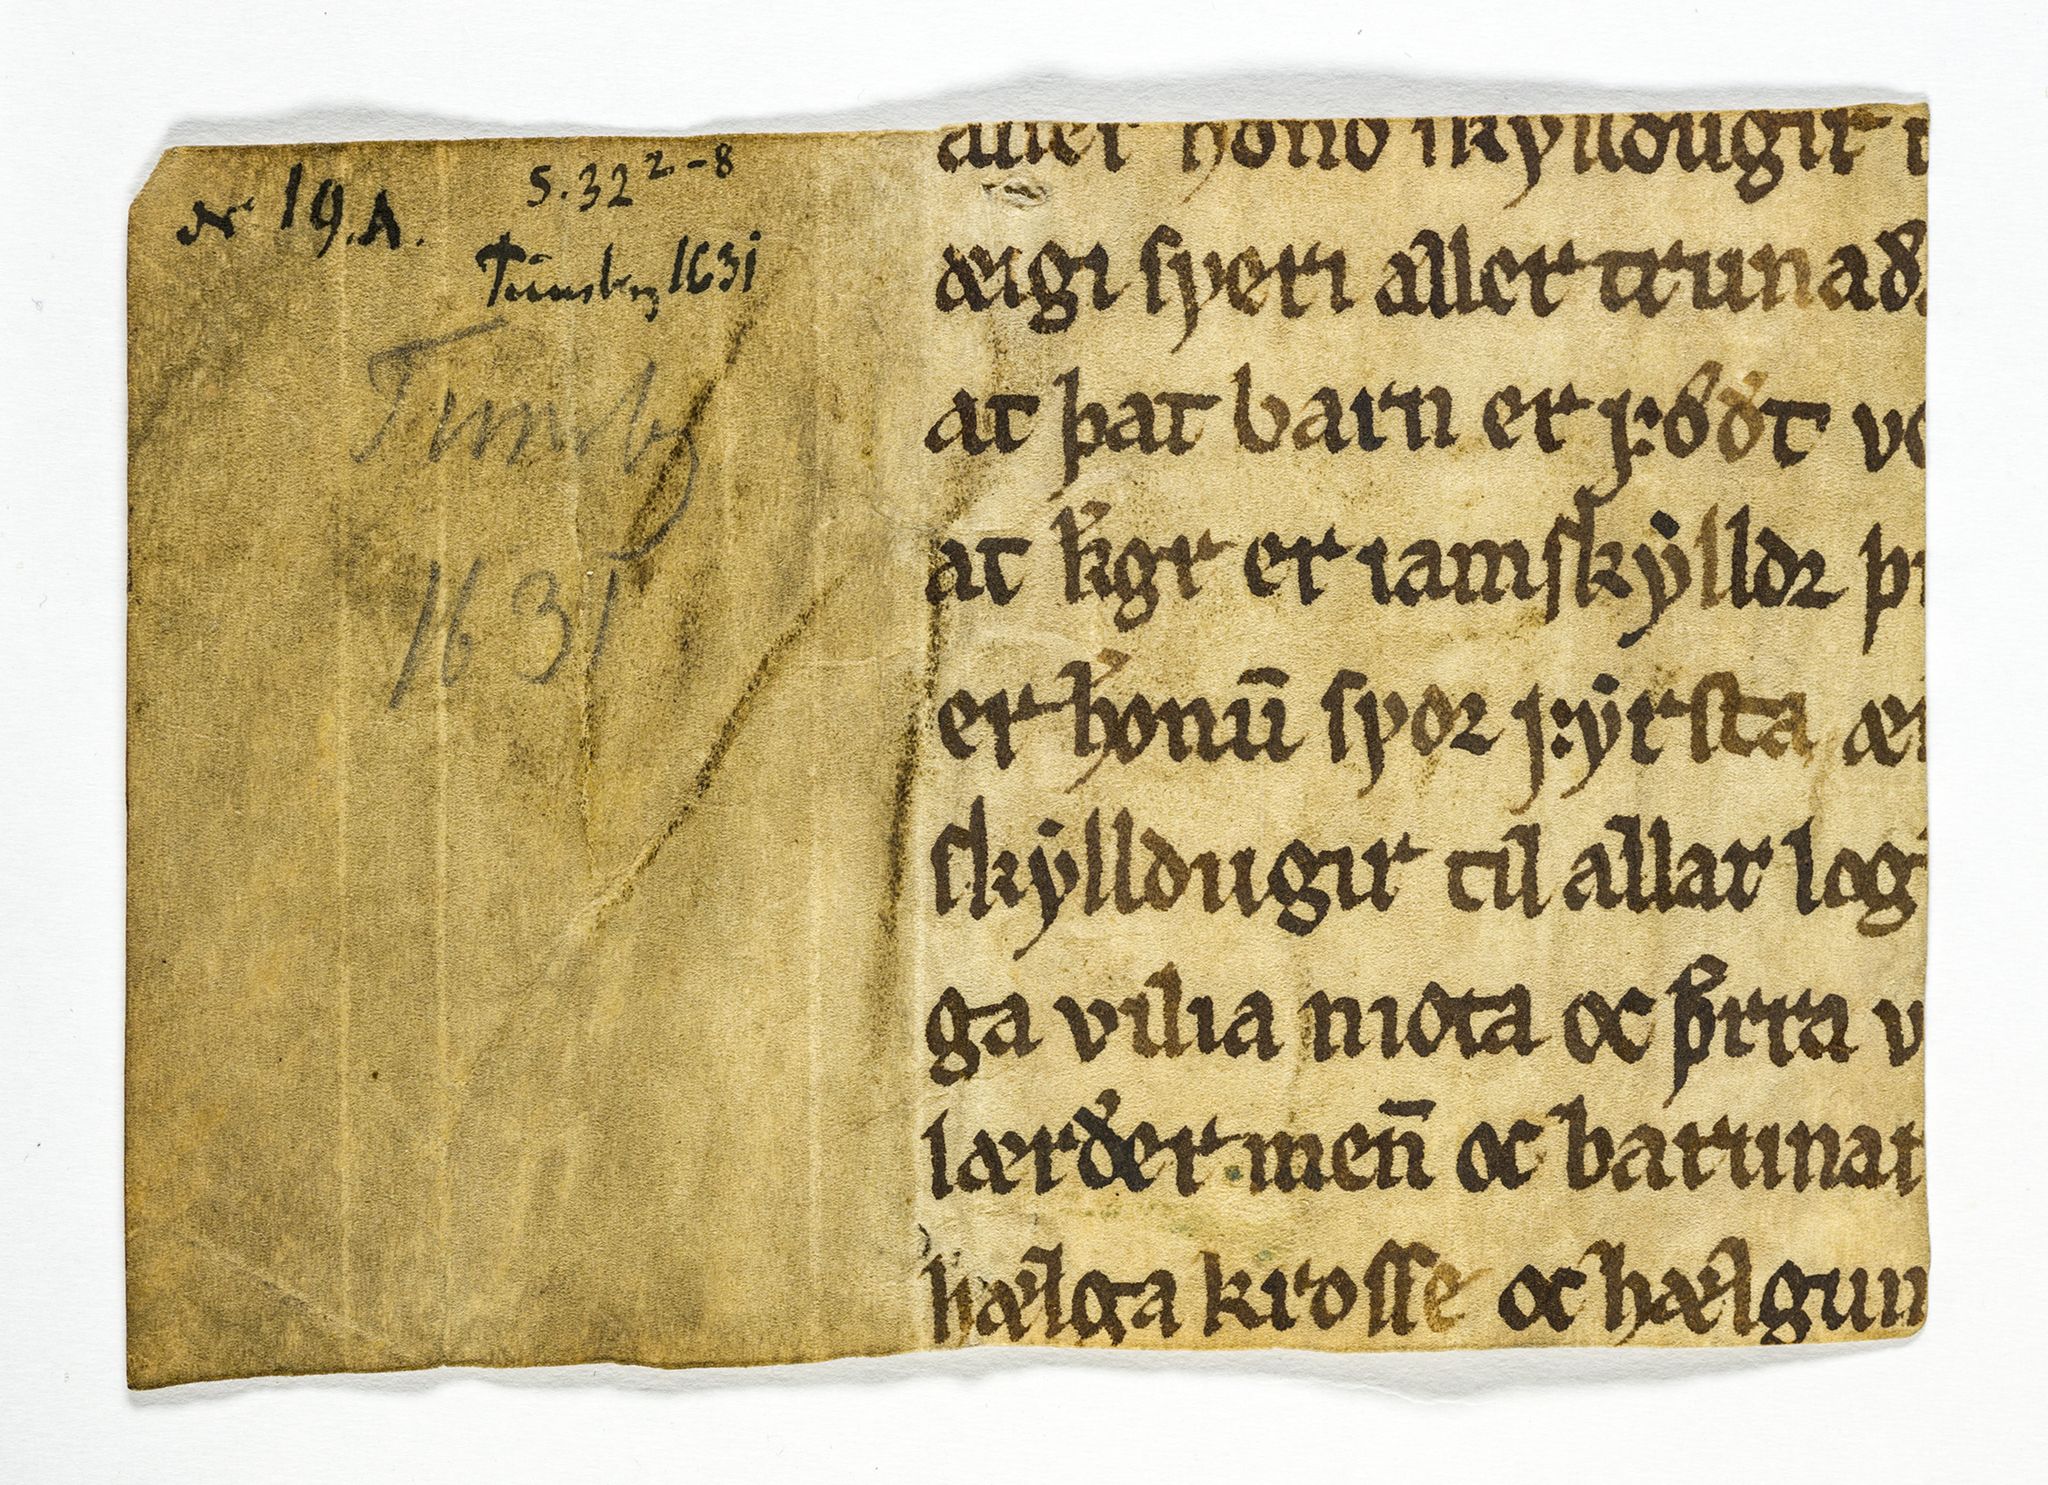 Nr 19.A.
S. 32 2-8
Tunsberg 1631
Tunsbg
1631
aller hond skylldugir
æigi spyeri aller trunað
at þat barn er fǿðt
at kgr er iamskylldꝛ
er honū spoꝛ fyrsta
skylldugir til allar log
ga vilia niota oc þ̄rra
lærðer men̄ oc barunat
hælga krosse oc hælgum